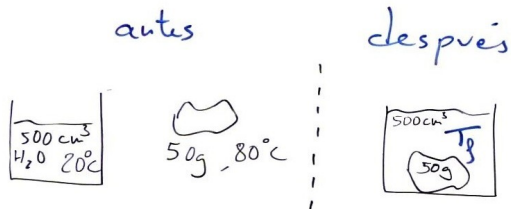 antes
después
500 cm³
H₂O 20°C
50g, 80°C
500 cm³
Tf
50g